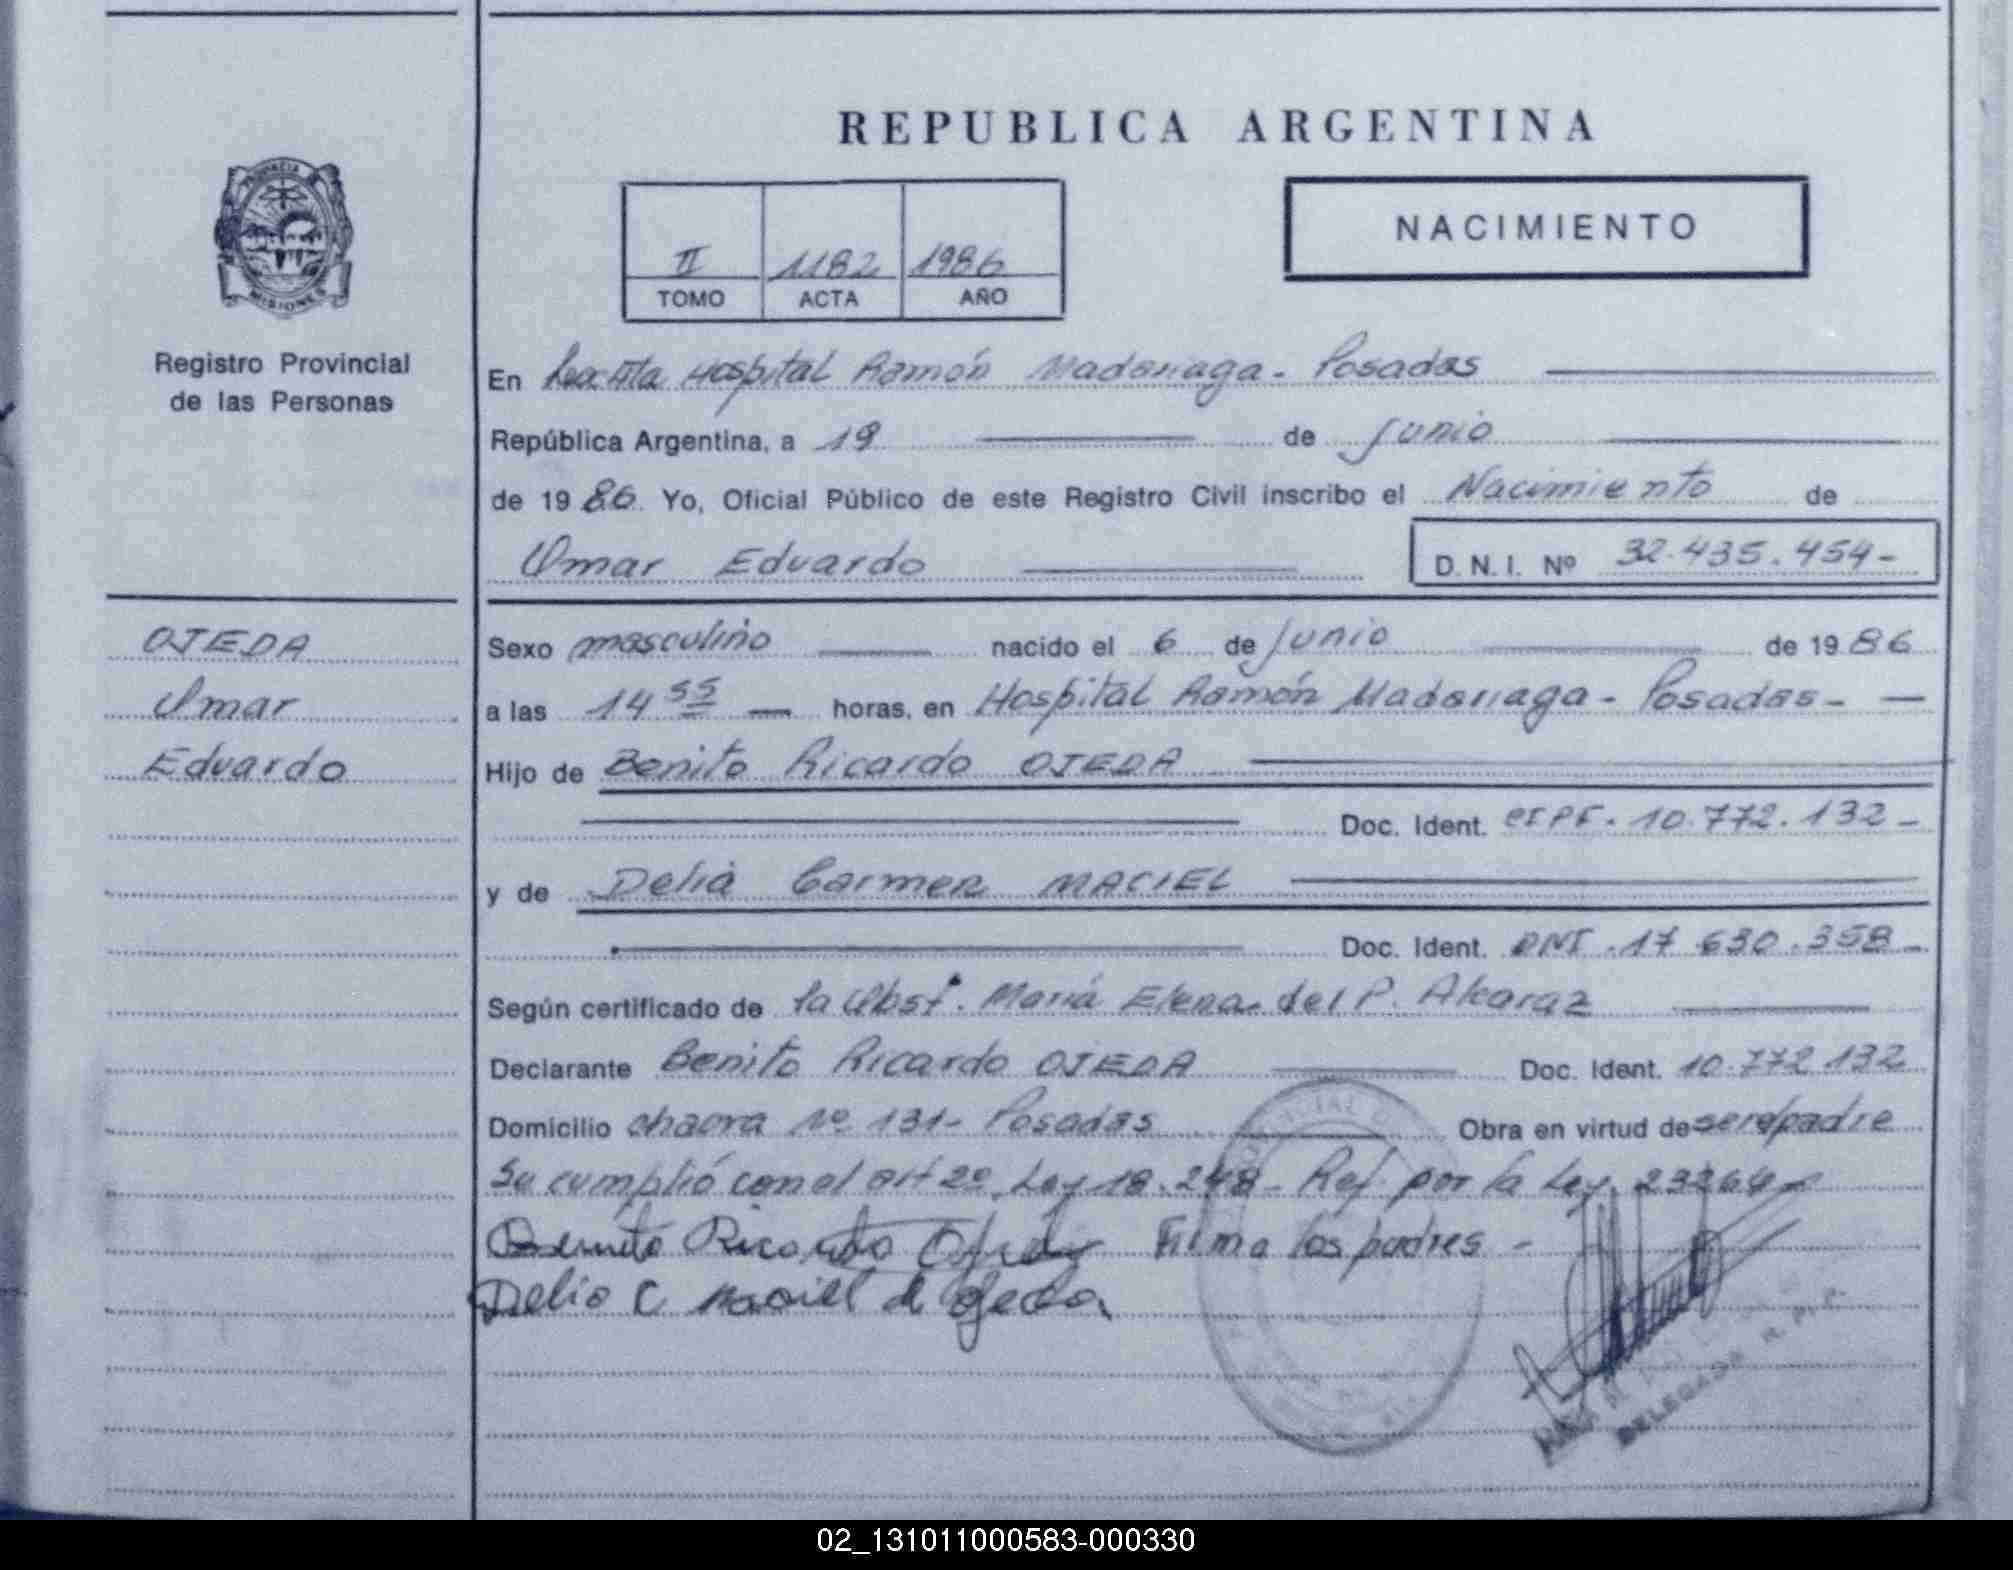 REPUBLICA ARGENTINA
NACIMIENTO
II 1182 1986
TOMO ACTA AÑO
PROVINCIA
MISIONES
Registro Provincial
de las Personas
En Hospital Ramón Madariaga - Posadas
República Argentina, a 19 de Junio
de 1986. Yo, Oficial Público de este Registro Civil inscribo el Nacimiento de
Omar Eduardo D.N.I. Nº 32.435.454-
OJEDA
Omar
Eduardo
Sexo masculino nacido el 6 de Junio de 1986
a las 14 55 horas, en Hospital Ramón Madariaga - Posadas -
Hijo de Benito Ricardo OJEDA
Doc. Ident. CIPF. 10.772.132-
y de Delia Carmen MACIEL
Doc. Ident. DNI. 17.630.358-
Según certificado de la Obst. María Elena del P. Alcaraz
Declarante Benito Ricardo OJEDA Doc. Ident. 10.772.132
Domicilio chacra Nº 131- Posadas Obra en virtud de ser el padre
Se cumplió con el art 2º Ley 18.248 - Ref. por la Ley 23264-
Benito Ricardo Ojeda Firma los padres -
Delia C Maciel de Ojeda
DELEGADA R. P. P.
02_131011000583-000330